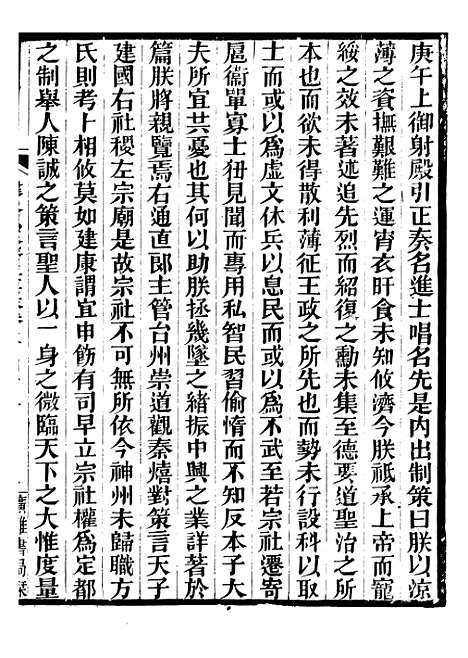 庚午上御射殿引正奏名進士唱名先是內出制策曰朕以涼
薄之資撫艱難之運宵衣旰食未知攸濟今朕祇承上帝而寵
綏之效未著追先烈而紹復之勳未集至德要道聖治之所
本也而欲未得散利薄征王政之所先也而勢未行設科以取
士而或以為虛文休兵以息民而或以為不武至若宗社遷寄
扈衞單寡士狃見聞而專用私智民習偷惰而不知反本子大
夫所宜共憂也其何以助朕拯幾墜之緒振中興之業詳著於
篇朕將親覽焉右通直郎主管台州崇道觀秦熺對策言天子
建國右社稷左宗廟是故宗社不可無所依今神州未歸職方
氏則考卜相攸莫如建康謂宜申飭有司早立宗社權為定都
之制舉人陳誠之策言聖人以一身之微臨天下之大惟度量
廣雅書局栞